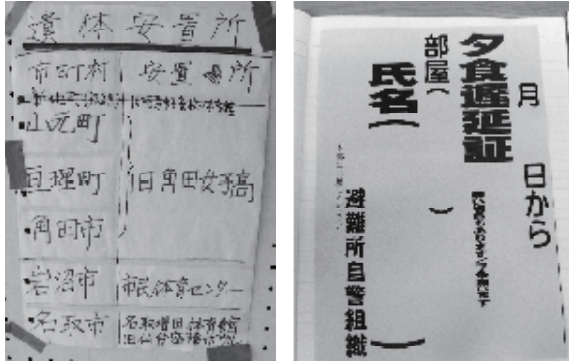 遺体安置所
市町村 安置場所
山元町
亘理町 旧角田女子高
角田市
岩沼市 市民体育センター
名取市 名取増田体育館
月 日から
夕食遅延証
部屋（ ）
氏名（ ）
避難所自警組織